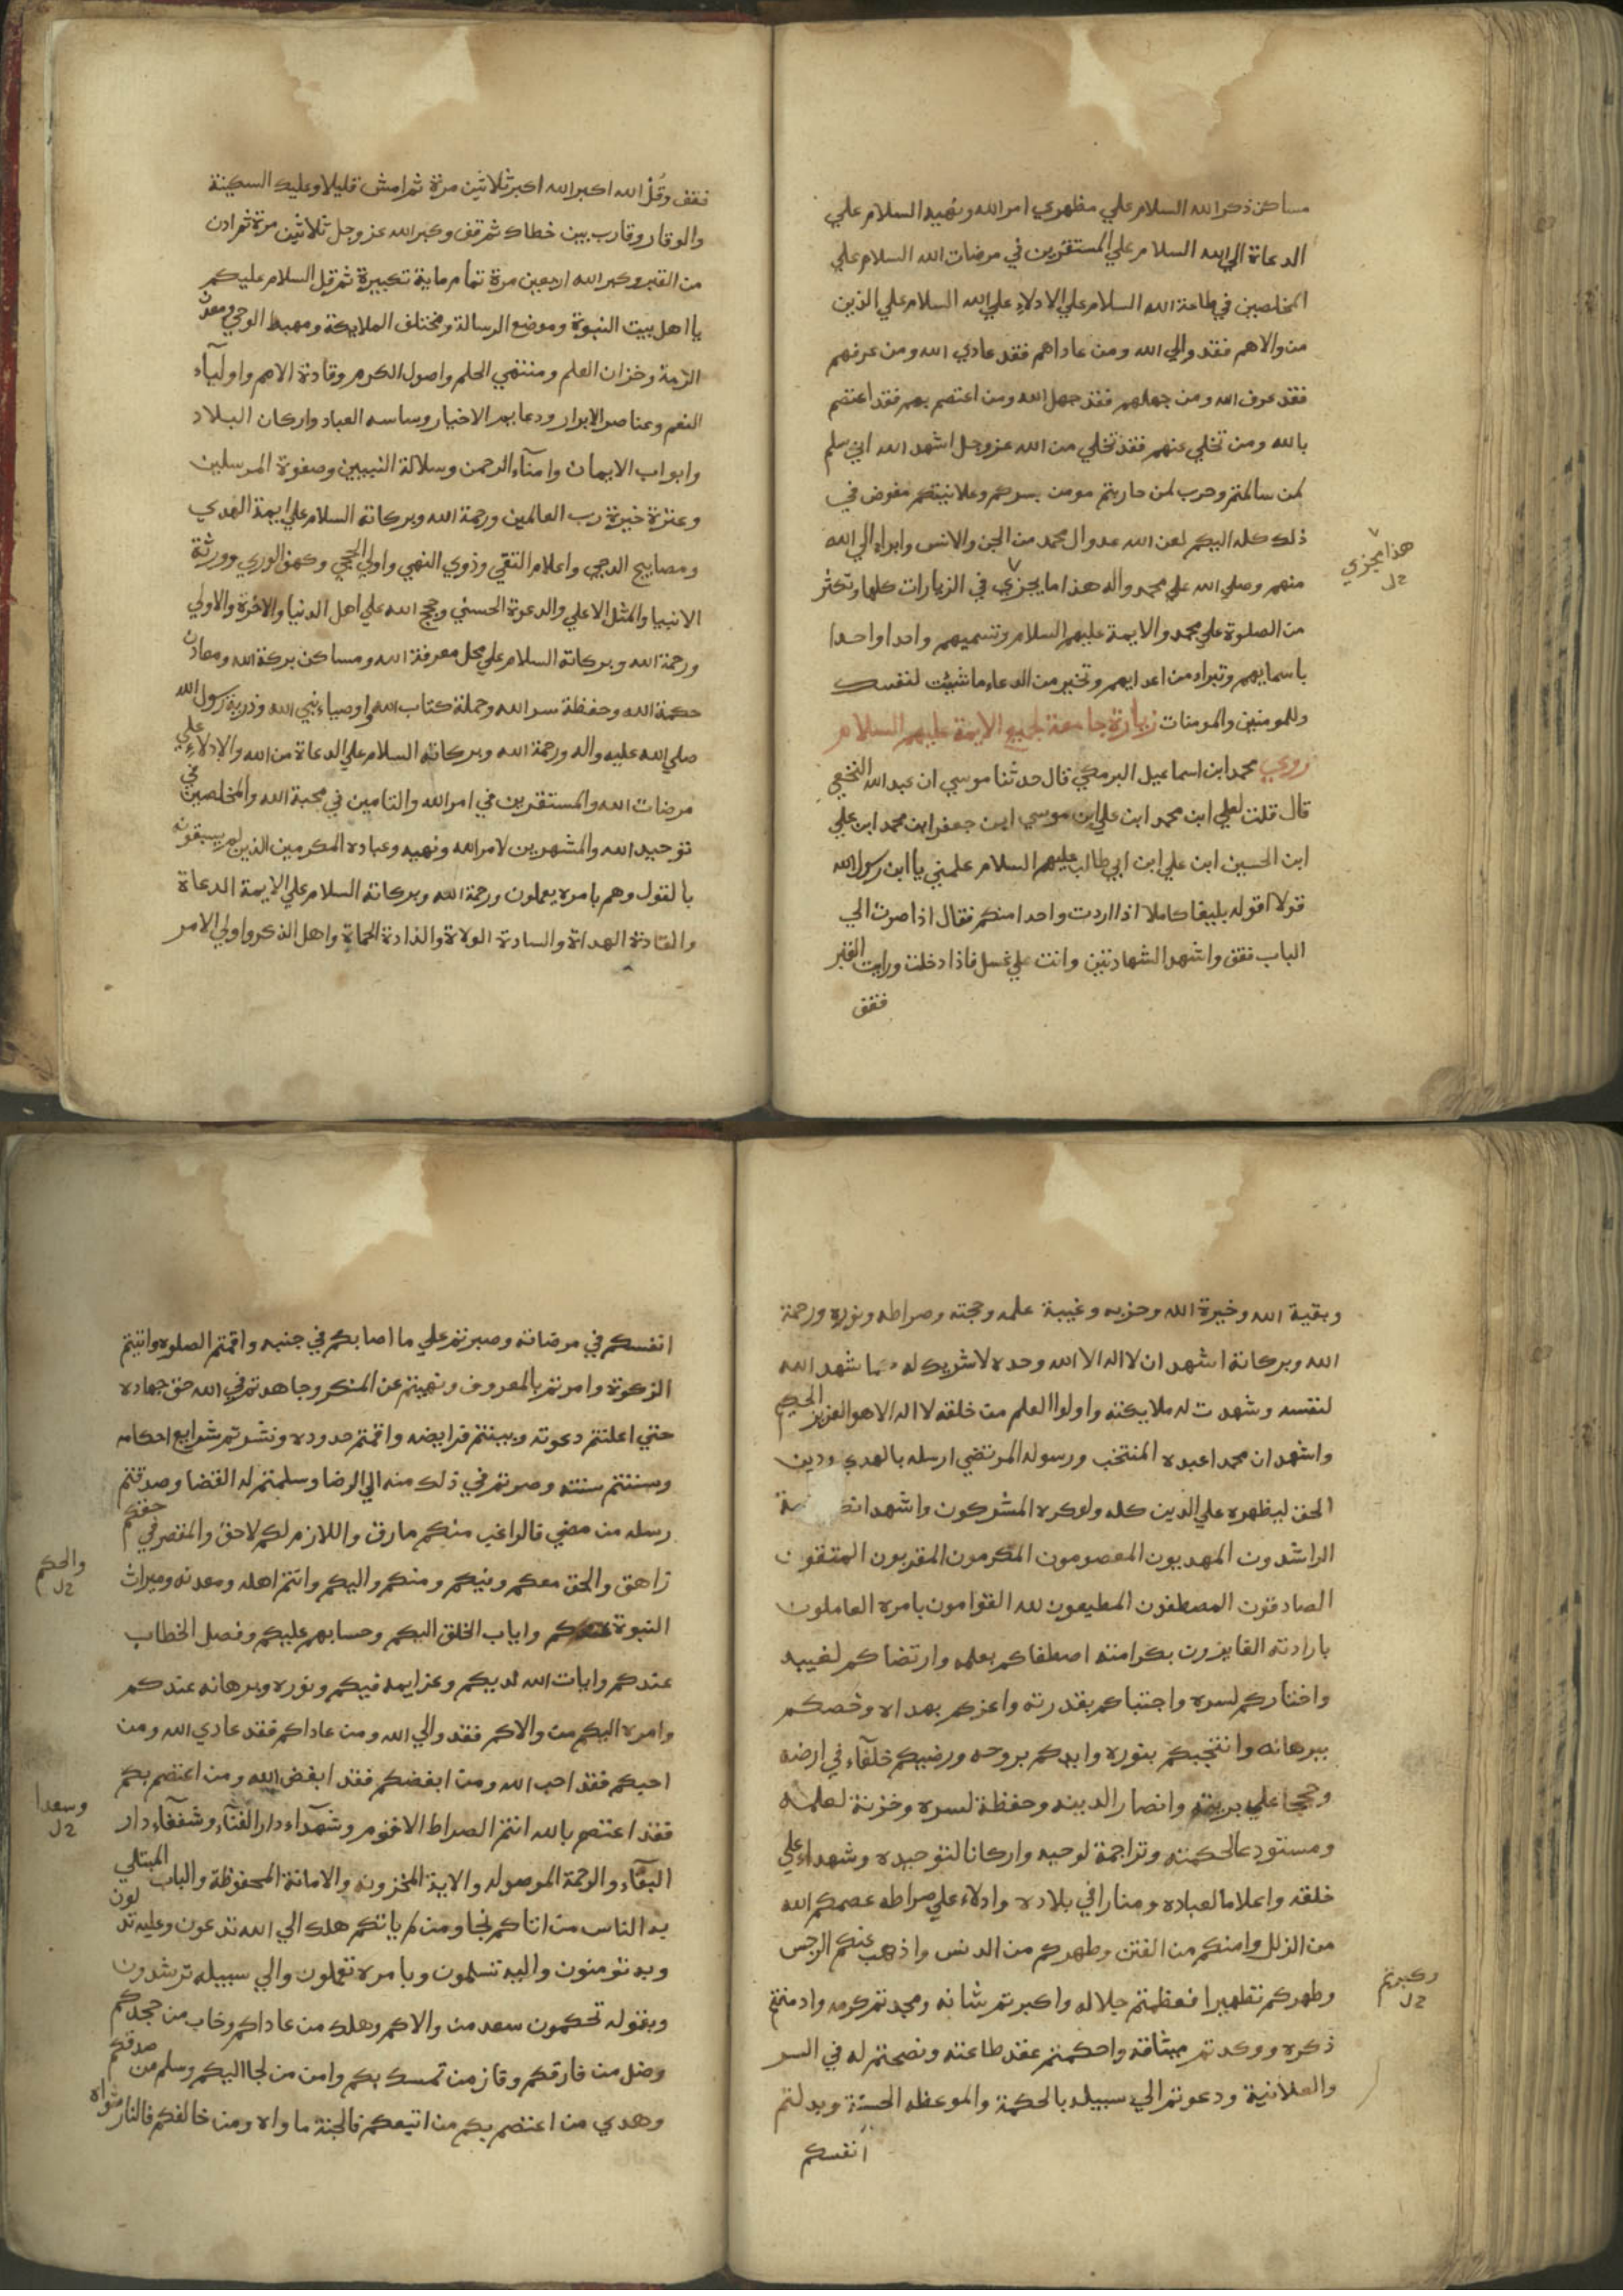 مساكن ذكر الله السلام علي مظهري امر الله ونهيه السلام علي
الدعاة الي الله السلام علي المستقرين في مرضات الله السلام علي
المخلصين في طاعة الله السلام علي الادلاء علي الله السلام علي الذين
من والاهم فقد والي الله ومن عاداهم فقد عادي الله ومن عرفهم
فقد عرف الله ومن جهلهم فقد جهل الله ومن اعتصم بهم فقد اعتصم
بالله ومن تخلي عنهم فقد تخلي من الله عز وجل اشهد الله اني سلم
لمن سالمتم وحرب لمن حاربتم مومن بسركم وعلانيتكم مفوض في
ذلك كله اليكم لعن الله عدو ال محمد من الجن والانس وابراء الي الله
منهم وصلي الله علي محمد واله هذا ما يجزي في الزيارات كلها وتكثر
هذا مجزي
من الصلوة علي محمد والايمة عليهم السلام وتسميهم واحدا واحدا
باسمايهم وتبراء من اعدايهم وتخير من الدعاء ما شيئت لنفسك
وللمومنين والمومنات زيارة جامعة لجميع الايمة عليهم السلام
روي محمد ابن اسماعيل البرمكي قال حدثنا موسي ان عبد الله النخعي
قال قلت لعلي ابن محمد ابن علي ابن موسي ابن جعفر ابن محمد ابن علي
ابن الحسين ابن علي ابن ابي طالب عليهم السلام علمني يا ابن رسول الله
قولا اقوله بليغا كاملا اذا اردت واحدا منكم فقال اذا صرت الي
الباب فقف واشهد الشهادتين وانت علي غسل فاذا دخلت ورايت القبر
فقف
فقف وقُلْ الله اكبر الله اكبر ثلاثين مرة ثم امش قليلا وعليك السكينة
والوقار وقارب بين خطاك ثم قف وكبر الله عز وجل ثلاثين مرة ثم ادن
من القبر وكبر الله اربعين مرة تمام ماية تكبيرة ثم قل السلام عليكم
يا اهل بيت النبوة وموضع الرسالة ومختلف الملايكة ومهبط الوحي ومعدن
الرحمة وخزان العلم ومنتهي الحلم واصول الكرم وقادة الامم واوليآء
النعم وعناصر الابرار ودعايم الاخيار وساسه العباد واركان البلاد
وابواب الايمان وامنآء الرحمن وسلالة النبيين وصفوة المرسلين
وعترة خيرة رب العالمين ورحمة الله وبركاته السلام علي ايمة الهدي
ومصابيح الدجي واعلام التقي وذوي النهي واولي الحجي وكهف الوري وورثة
الانبيا والمثل الاعلي والدعوة الحسني وحجج الله علي اهل الدنيا والاخرة والاولي
ورحمة الله وبركاته السلام علي محل معرفة الله ومساكن بركة الله ومعادن
حكمة الله وحفظة سر الله وحملة كتاب الله واوصياء نبي الله وذرية رسول الله
صلي الله عليه واله ورحمة الله وبركاته السلام علي الدعاة من الله والادلاء علي
مرضات الله والمستقرين في امر الله والتامين في محبة الله والمخلصين في
توحيد الله والمشهرين لامر الله ونهيه وعباده المكرمين الذين لم يسبقونه
بالقول وهم بامره يعملون ورحمة الله وبركاته السلام علي الايمة الدعاة
والقادة الهداة والسادة الولاة والذادة الحماة واهل الذكر واولي الامر
وبقية الله وخيرة الله وحزبه وغيبة علمه وحجته وصراطه ونوره ورحمة
الله وبركاته اشهد ان لا اله الا الله وحده لا شريك له كما شهد الله
لنفسه وشهدت له ملايكته واولوا العلم من خلقه لا اله الا هو العزيز الحكيم
واشهد ان محمدا عبده المنتخب ورسوله المرتضي ارسله بالهدي ودين
الحق ليظهره علي الدين كله ولو كره المشركون واشهد
الراشدون المهديون المعصومون المكرمون المقربون المتقون
الصادقون المصطفون المطيعون لله القوامون بامره العاملون
بارادته الفايزون بكرامته اصطفاكم بعلمه وارتضاكم لغيبه
واختاركم لسره واجتباكم بقدرته واعزكم بهداه وخصكم
ببرهانه وانتجبكم بنوره وايدكم بروحه ورضيكم خلفآء في ارضه
وحججا علي بريته وانصار الدينه وحفظة لسره وخزنة لعلمه
ومستودعا لحكمته وتراجمة لوحيه واركانا لتوحيده وشهداء علي
خلقه واعلاما لعباده ومنارا في بلاده وادلاء علي صراطه عصمكم الله
من الزلل وامنكم من الفتن وطهركم من الدنس واذهب عنكم الرجس
وطهركم تطهيرا فعظمتم جلاله واكبرتم شانه ومجدتم كرمه وادمنتم
وكبرتم
ذكره ووكدتم ميثاقه واحكمتم عقد طاعته ونصحتم له في السر
والعلانية ودعوتم الي سبيله بالحكمة والموعظه الحسنة وبدلتم
انفسكم
انفسكم في مرضاته وصبرتم علي ما اصابكم في جنبه واقمتم الصلوه واتيتم
الزكوة وامرتم بالمعروف ونهيتم عن المنكر وجاهدتم في الله حق جهاده
حتي اعلنتم دعوته وبينتم فرايضه واقمتم حدوده ونشرتم شرايع احكامه
وسننتم سنته وصرتم في ذلك منه الي الرضا وسلمتم له القضا وصدقتم
رسله من مضي فالراغب منكم مارق واللازم لكم لاحق والمقصر في حقكم
زاهق والحق معكم وفيكم ومنكم واليكم وانتم اهله ومعدنه وميراث
والحكم
النبوة عندكم واياب الخلق اليكم وحسابهم عليكم وفصل الخطاب
عندكم وايات الله لديكم وعزايمه فيكم ونوره وبرهانه عندكم
وامره اليكم من والاكم فقد والي الله ومن عاداكم فقد عادي الله ومن
احبكم فقد احب الله ومن ابغضكم فقد ابغض الله ومن اعتصم بكم
فقد اعتصم بالله انتم الصراط الاقوم وشهدآء دار الفنآء وشفعآء دار
وسعدا
البقآء والرحمة الموصوله والاية المخزونه والامانة المحفوظة والباب المبتلي
به الناس من اتاكم نجا ومن لم ياتكم هلك الي الله تدعون وعليه تدلون
وبه تومنون واليه تسلمون وبامره تعملون والي سبيله ترشدون
وبقوله تحكمون سعد من والاكم وهلك من عاداكم وخاب من جحدكم
وضل من فارقكم وفاز من تمسك بكم وامن من لجا اليكم وسلم من صدقكم
وهدي من اعتصم بكم من اتبعكم فالجنة ماواه ومن خالفكم فالنار مثواه